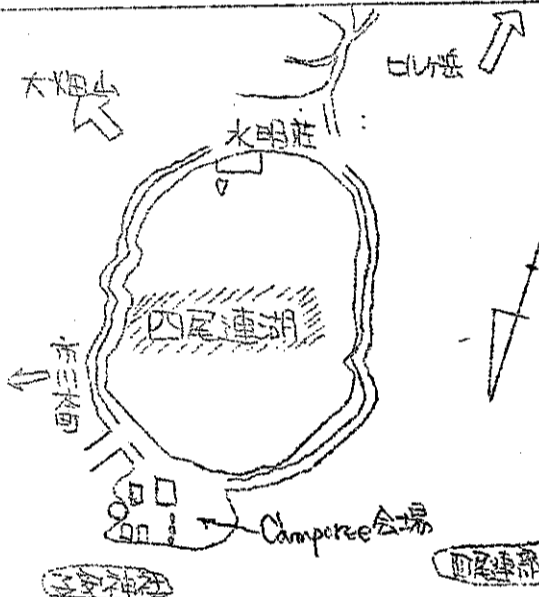 大畑山
ヒルケ岳
水明荘
四尾連湖
市川大門
Camporee会場
神社
四尾連部